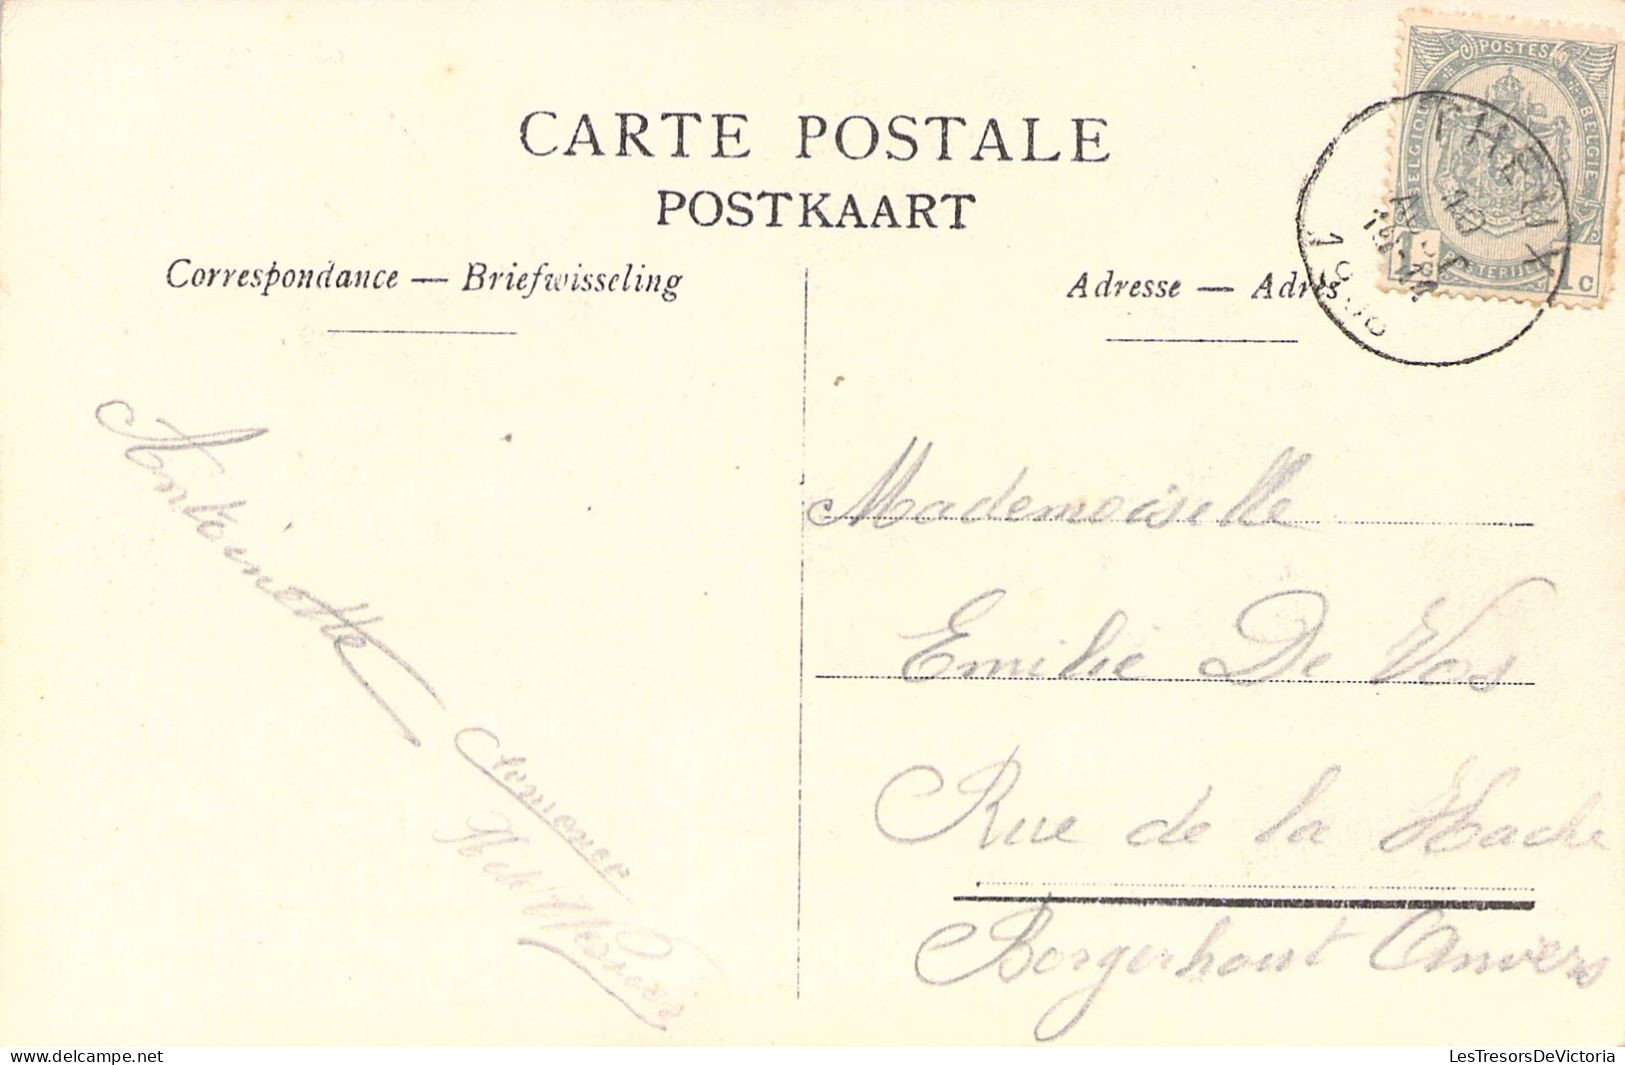 CARTE POSTALE
POSTKAART
Correspondance — Briefwisseling
Adresse — Adres
POSTES
BELGIQUE
BELGIE
1c POSTERIJEN 1c
THEUX
10
AOUT
1908
Antoinette
Mademoiselle
Emilie De Vos
Rue de la Hache
Borgerhout Anvers
LesTresorsDeVictoria - www.delcampe.net